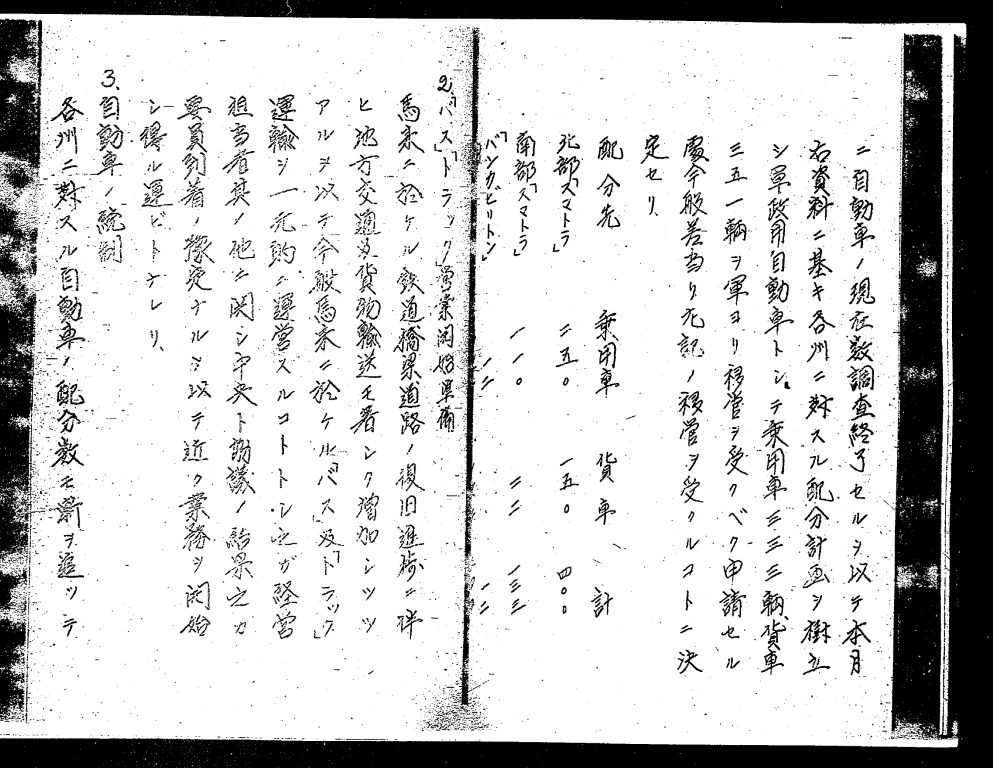 ニ自動車ノ現在数調査終了セルヲ以テ本月
右資料ニ基キ各州ニ対スル配分計画ヲ樹立
シ軍政用自動車トシテ乗用車三三三輌、貨車
三五一輌ヲ軍ヨリ移管ヲ受クベク申請セル
処今般差当リ左記ノ移管ヲ受クルコトニ決
定セリ
配分先 乗用車 貨車 計
北部「スマトラ」 二五〇 一五〇 四〇〇
南部「スマトラ」 一一〇 二二 一三二
「バンカビリトン」 一二 一二
2.「バス」「トラック」営業開始準備
馬来ニ於ケル鉄道橋梁道路ノ復旧進捗ニ伴
ヒ地方交通及貨物輸送モ著シク増加シツツ
アルヲ以テ今般馬来ニ於ケル「バス」及「トラック」
運輸ヲ一元的ニ運営スルコトトシ之ガ経営
担当者其ノ他ニ関シ中央ト協議ノ結果之カ
要員到着ノ予定ナルヲ以テ近ク業務ヲ開始
シ得ル運ビトナレリ、
3.自動車ノ統制
各州ニ対スル自動車ノ配分数モ漸ヲ追ッテ